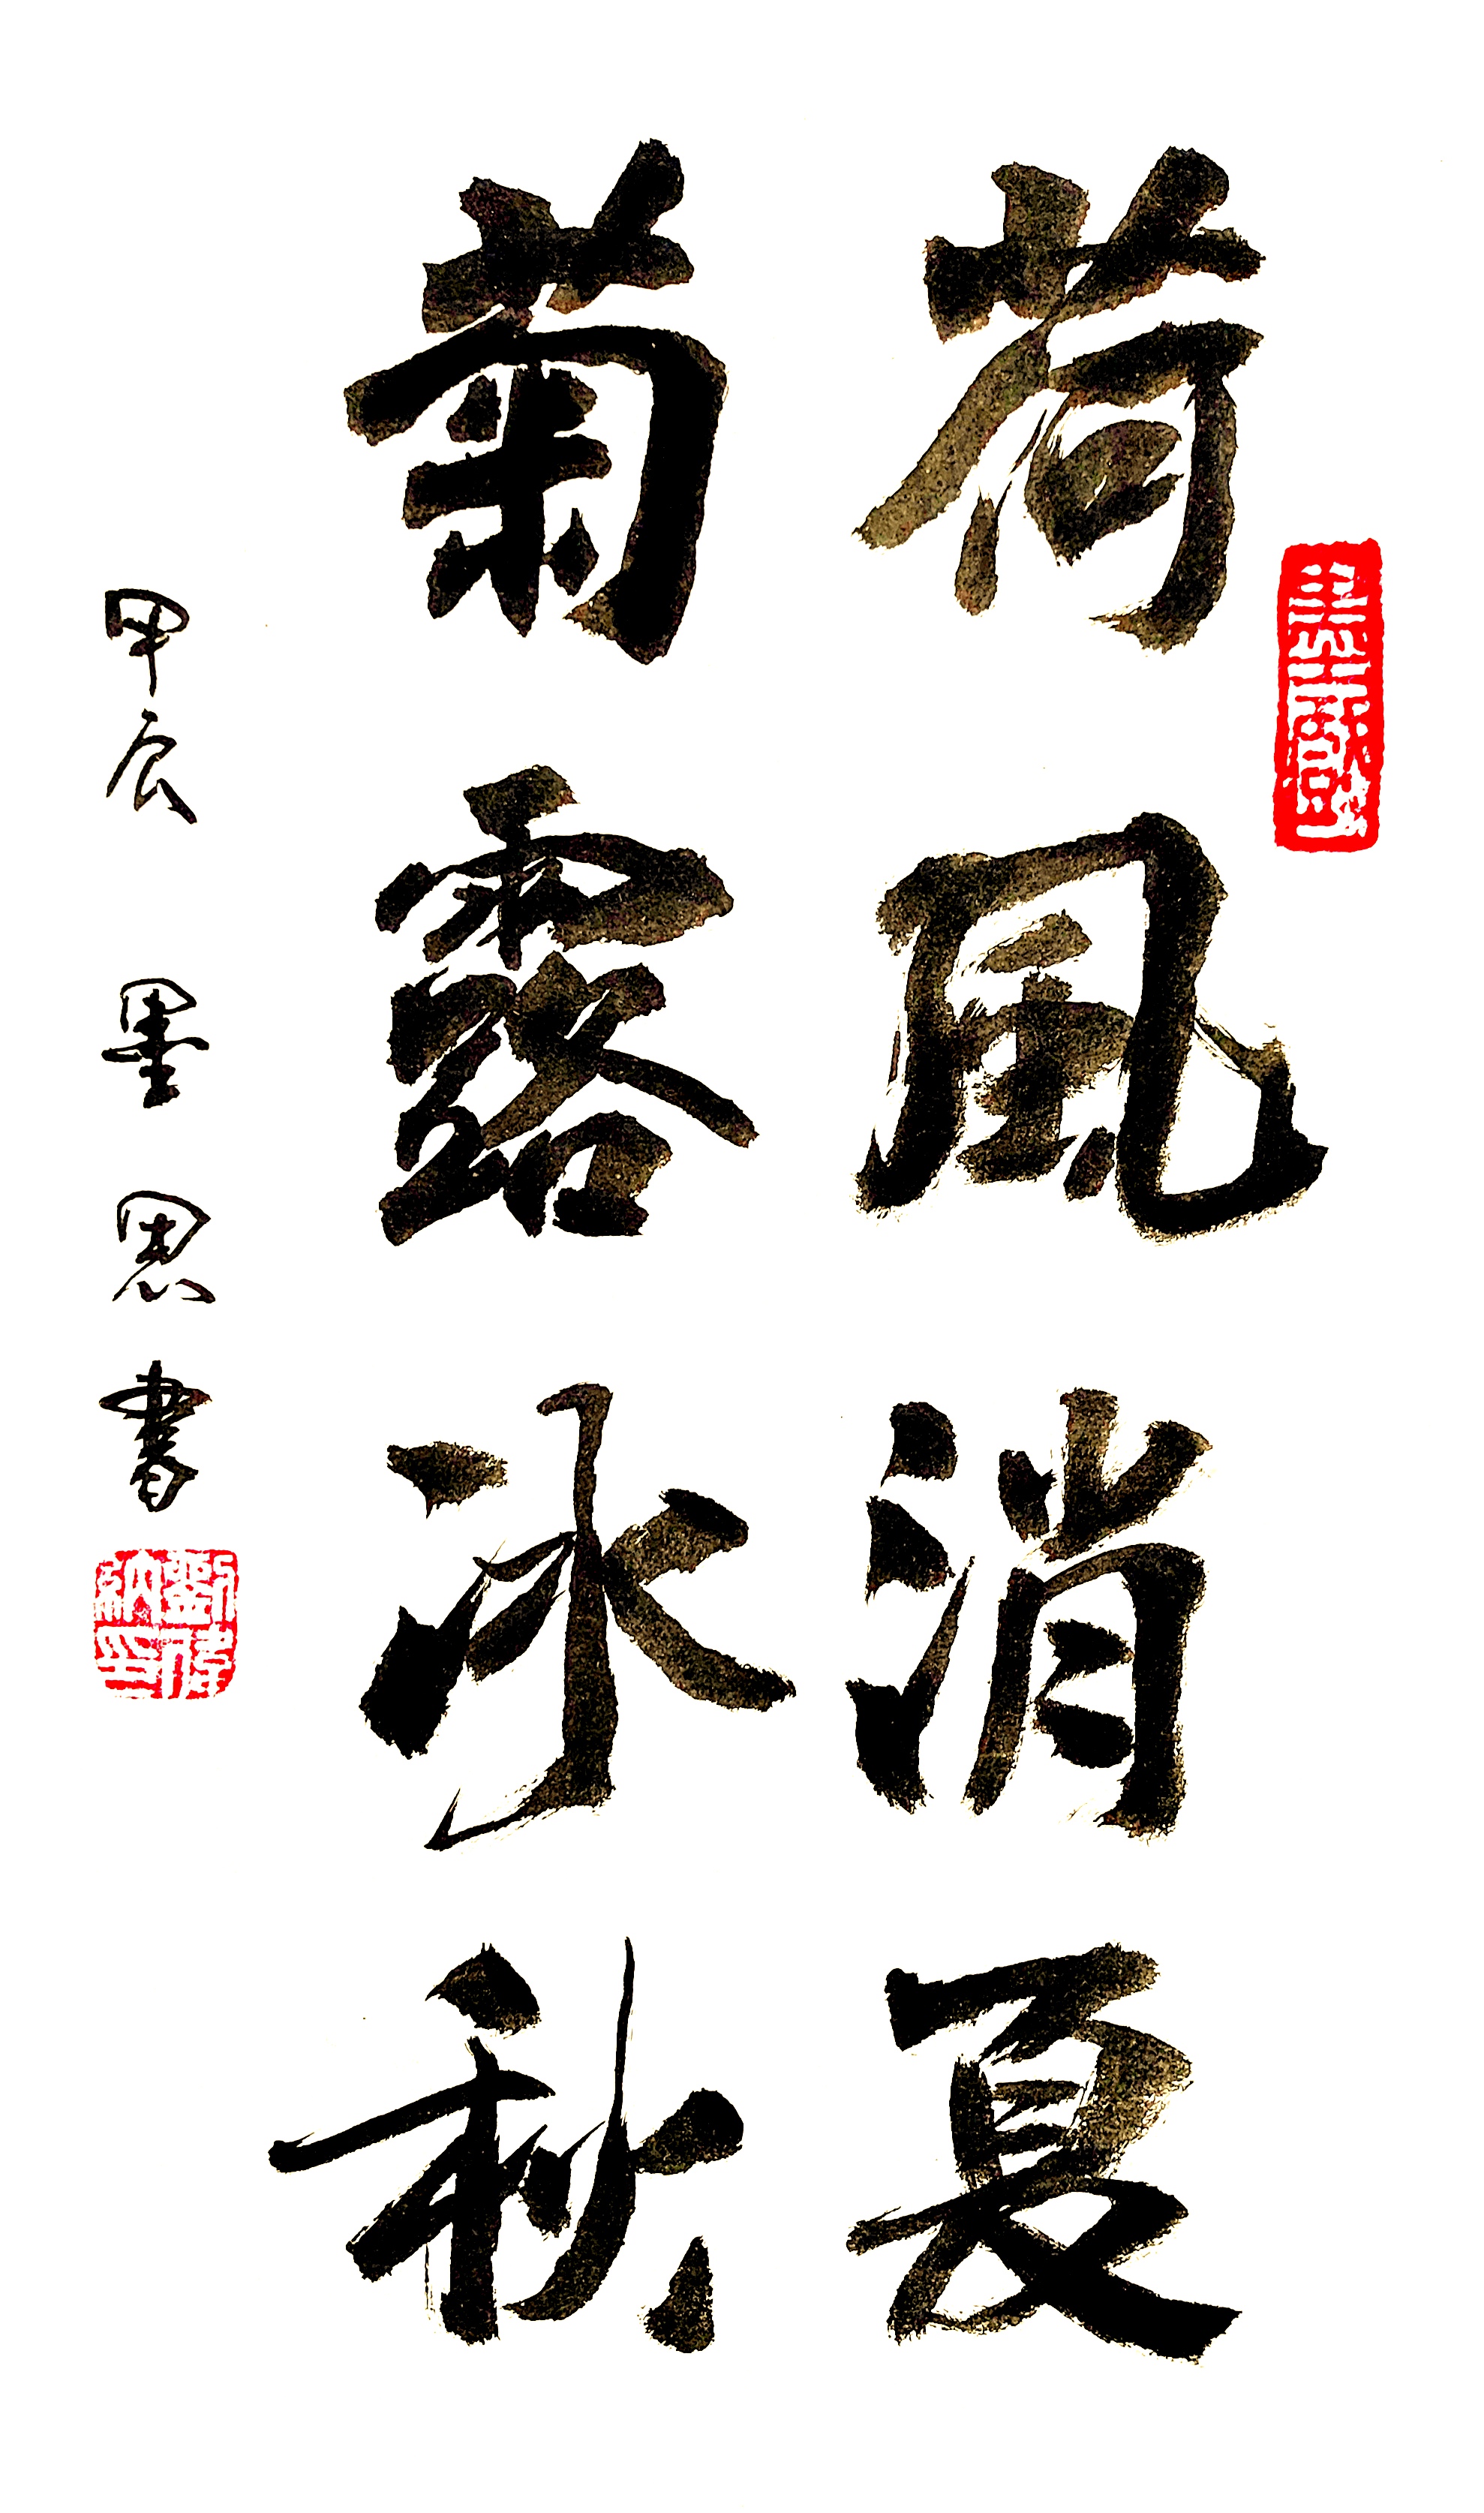 荷風消夏
菊露泳秋
甲辰 墨思書